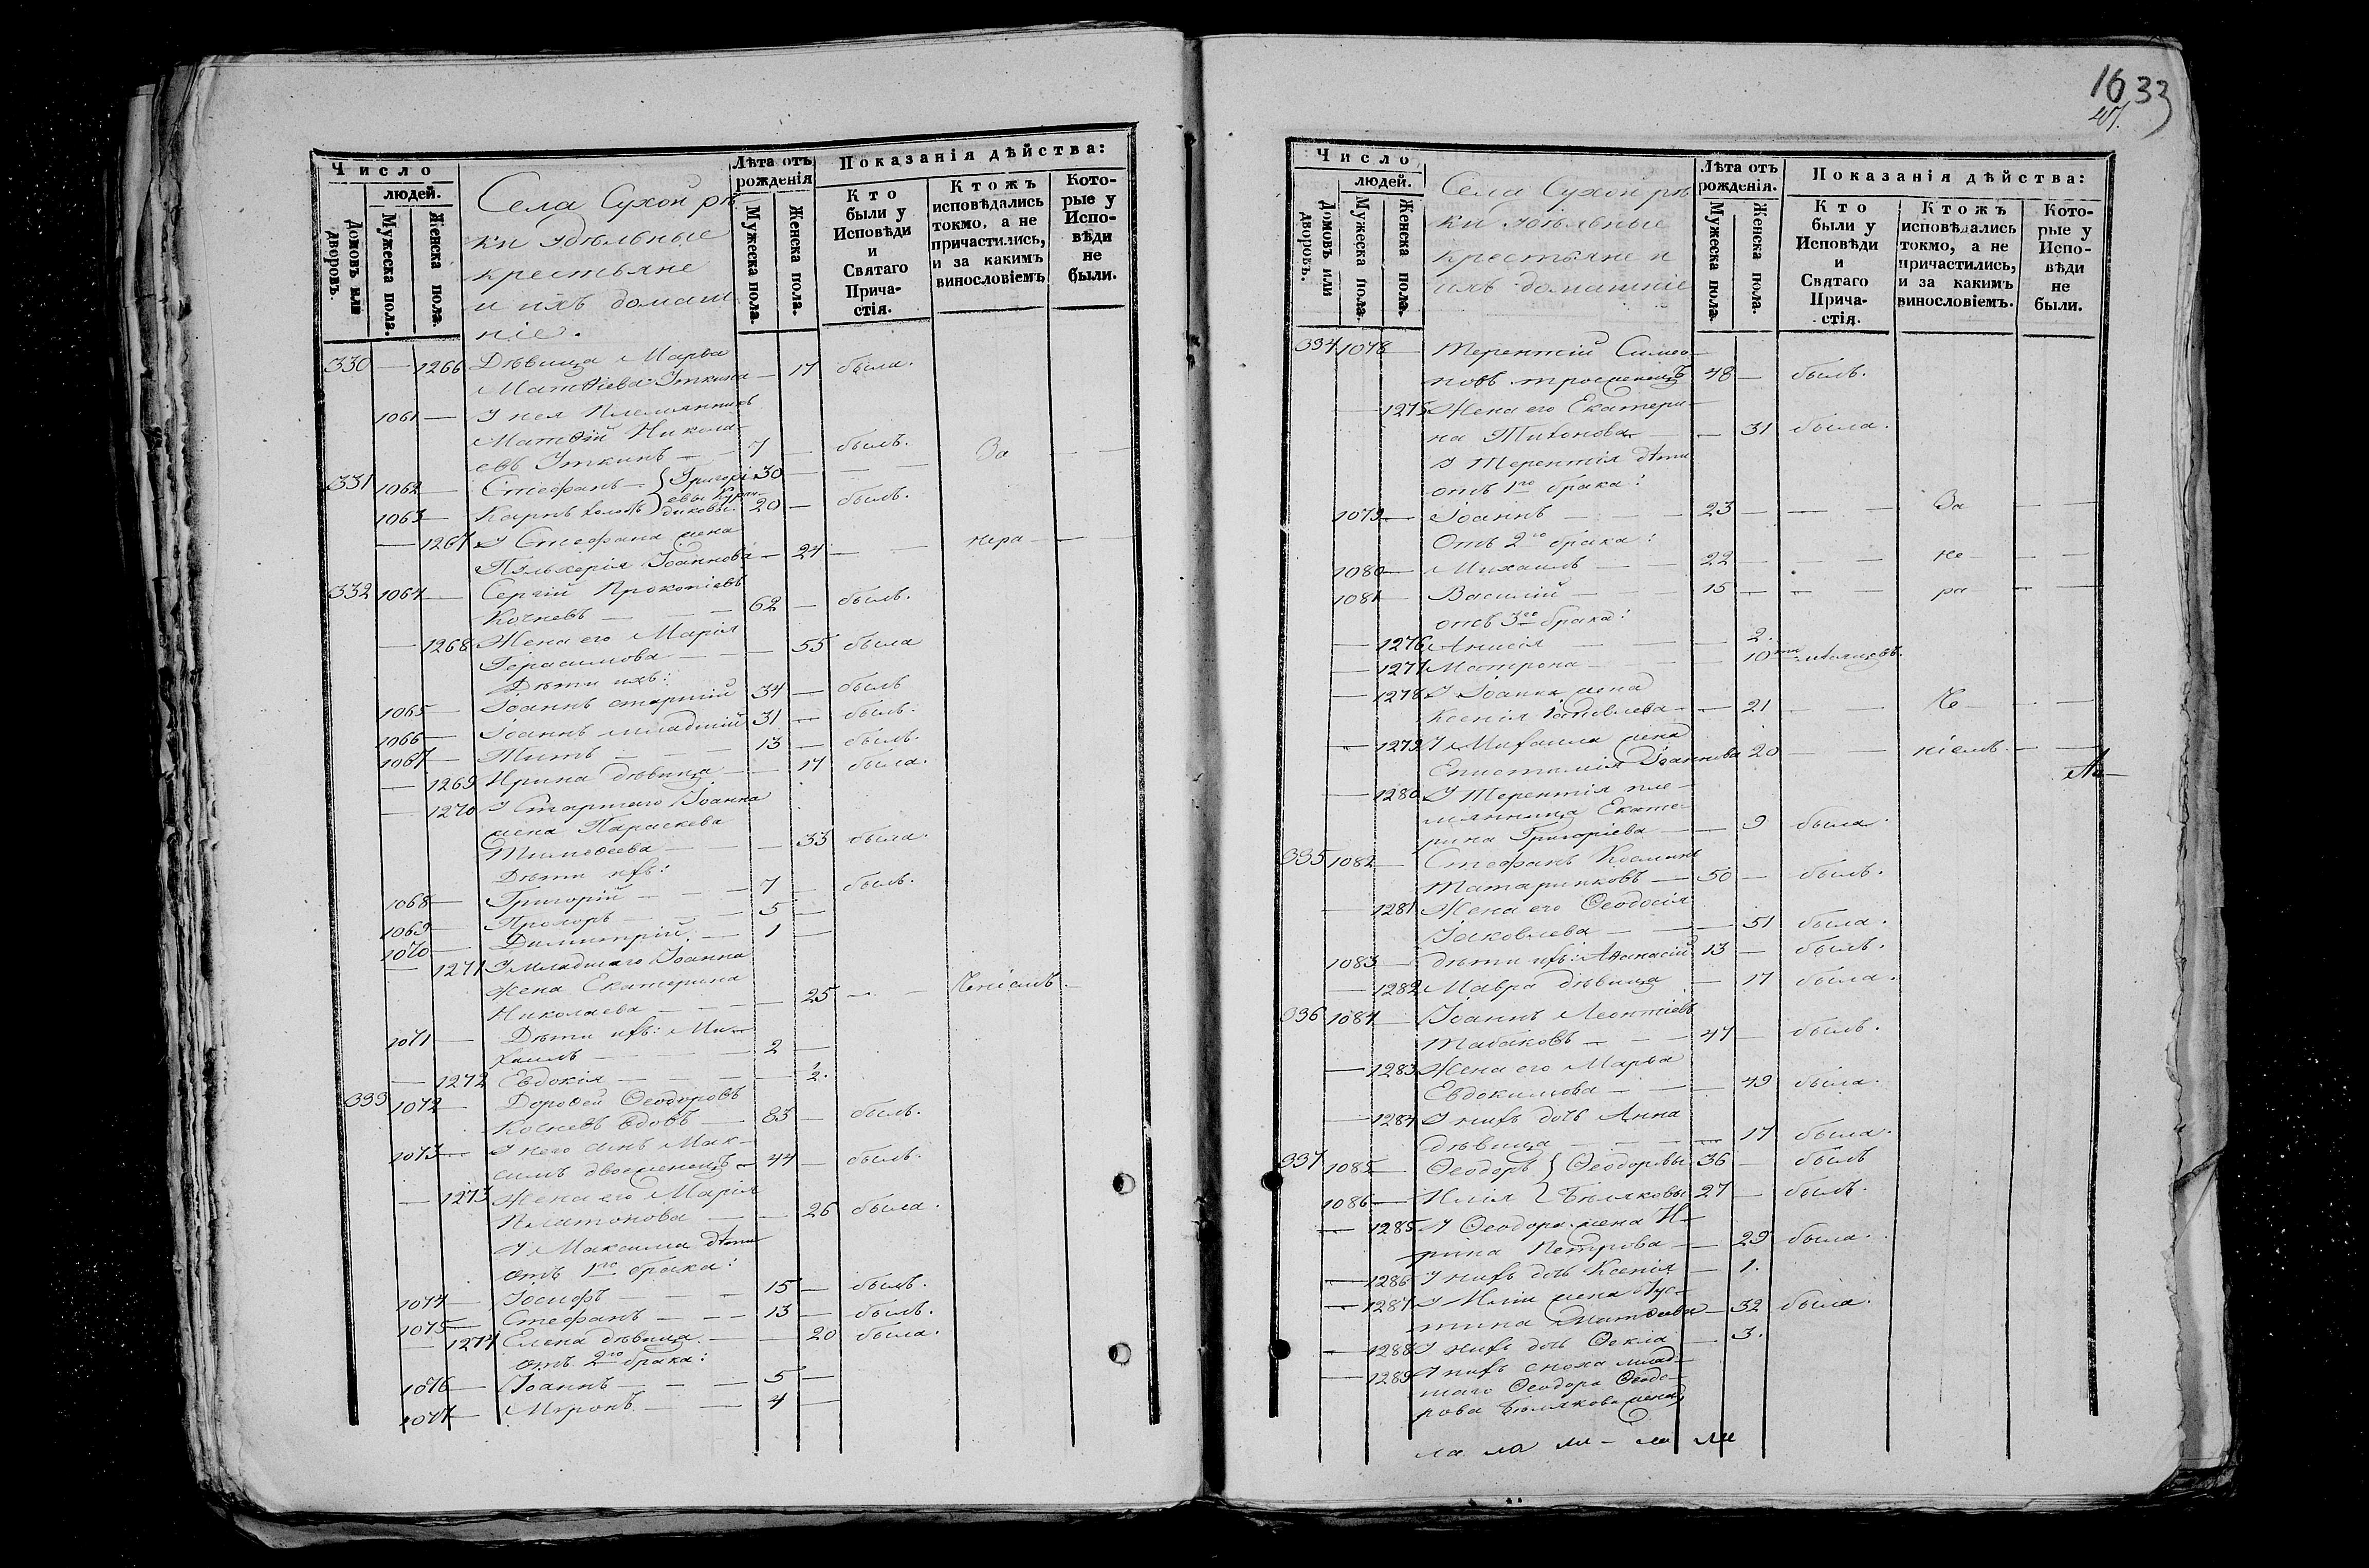 Число
людей.
Домовъ или дворовъ.
Мужеска пола.
Женска пола.
Села Сухой рѣ-
ки удѣльные
крестьяне
и ихъ домаш
ніе.
Лѣта отъ рожденія
Мужеска пола.
Женска пола.
Показанія дѣйства:
Кто были у Исповѣди и Святаго Прича-стія.
Ктожъ исповѣдались токмо, а не причастились, и за какимъ винословіемъ
Кото-рые у Испо-вѣди не были.
330 — 1266 Дѣвица Марѳа
Матѳіева Уткина — 17 была.
1061 — У нея племянникъ
Матѳій Никола-
евъ Уткинъ — 7 — былъ.
331 1062 — Стефанъ — } Григорі- 30 — — — За — —
1063 — Карпъ холостъ } евы 20 — былъ.
— 1267 У Стефана жена
Пульхерія Іоаннова — 24 — — нера — —
332 1064 — Сергій Прокопіевъ
Кочневъ — — 62 — былъ.
— 1268 Жена его Марія
Герасимова — — 55 была
Дѣти ихъ:
1065 — Іоаннъ старшій 34 — былъ
1066 — Іоаннъ младшій 31 — былъ.
1067 — Титъ — — 13 — былъ.
— 1269 Ирина дѣвица — — 17 была.
— 1270 У Старшаго Іоанна
жена Параскева
Тимоѳеева — — — 33 была.
Дѣти ихъ:
1068 — Григорій — — — 7 — былъ.
1069 — Прохоръ — — 5 —
1070 — Димитрій. — 1 —
— 1271 У Младшаго Іоанна
жена Екатерина
Николаева — — — 25 — — Неніемъ —
1071 — Дѣти ихъ: Ми-
хаилъ — — — 2 —
— 1272 Евдокія — — — — 1/2.
333 1072 — Дороѳей Ѳеодоровъ
Кочневъ вдовъ — 83 — былъ.
1073 — У него сынъ Мак-
симъ двоеженецъ — 44 — былъ.
— 1273 Жена его Марія
Платонова — — 26 была.
У Максима дѣти
отъ 1го брака:
1074 — Іосифъ — — — 15 — былъ.
1075 — Стефанъ — — — 13 — былъ.
— 1274 Елена дѣвица — — 20 была.
отъ 2го брака:
1076 — Іоаннъ — — — 5 —
1077 — Миронъ — — 4 —
16 33
Число
людей.
Домовъ или дворовъ.
Мужеска пола.
Женска пола.
Села Сухой рѣ
ки удѣльные
крестьяне и
ихъ домашніе
Лѣта отъ рожденія.
Мужеска пола.
Женска пола.
Показанія дѣйства:
Кто были у Исповѣди и Святаго Прича-стія.
Ктожъ исповѣдались токмо, а не причастились, и за какимъ винословіемъ.
Кото-рые у Испо-вѣди не были.
334 1078 — Терентій Симео-
новъ троеженецъ 48 — былъ.
— 1275 Жена его Екатери-
на Тихонова — — 31 была.
У Терентія дѣти
отъ 1го брака:
1079 — Іоаннъ — — — 23 — — — За — —
Отъ 2го брака:
1080 — Михаилъ — — 22 — — — не — —
1081 — Василій — — — 15 — — — ра — —
отъ 3го брака:
— 1276 Анисія — — — 2.
— 1277 Матрона — — — 10ти мѣсяцовъ.
— 1278 У Іоанна жена
Ксенія Іаковлева — — 21 — — Не — —
— 1279 У Михаила жена
Епистимія Іоаннова 20 — — ніемъ. — —
— 1280 У Терентія пле-
мянница Екате-
рина Григоріева — — 9 была.
335 1082 — Стефанъ Косминъ
Татаринковъ — 50 — былъ.
— 1281 Жена его Ѳеодосія
Іаковлева — — — 51 была.
1083 — дѣти ихъ: Аѳанасій 13 — былъ.
— 1282 Мавра дѣвица — 17 была.
336 1084 — Іоаннъ Леонтіевъ
Табаковъ — — — 47 — былъ.
— 1283 Жена его Марѳа
Евдокимова — — — 49 была.
— 1284 У нихъ дочь Анна
дѣвица — — — — 17 была.
337 1085 — Ѳеодоръ } Ѳеодоровы 36 — былъ
1086 — Илія } Бѣляковы 27 — былъ.
— 1285 У Ѳеодора жена И-
рина Петрова — — 29 была.
— 1286 У нихъ дочь Ксенія — 1.
— 1287 У Иліи жена Іус-
тина Матѳеева — 32 была.
— 1288 У нихъ дочь Ѳекла — 3.
— 1289 У нихъ сноха млад-
шаго Ѳеодора Ѳеодо-
рова Бѣлякова жена